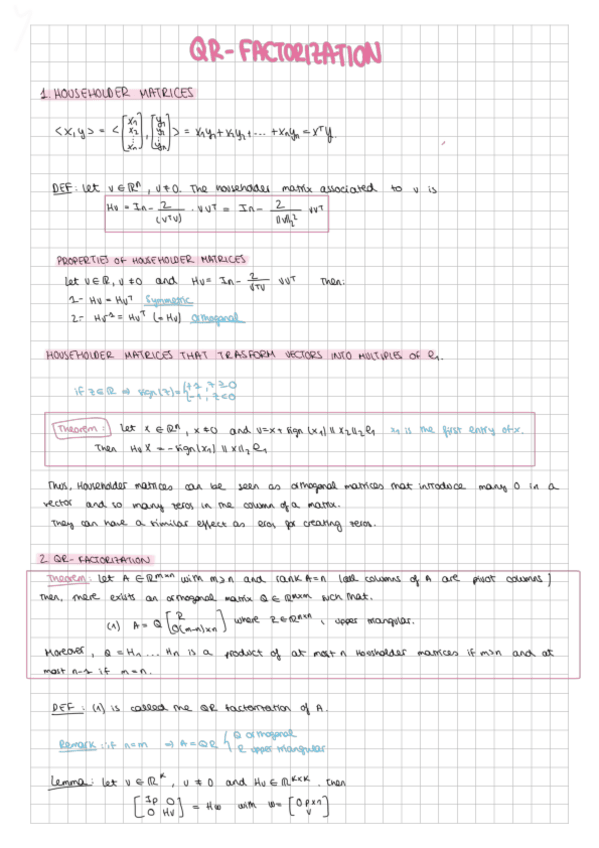 QR-FACTORIZATION
1. HOUSEHOLDER MATRICES
<x,y> = <[x1 x2 ⋮ xn], [y1 y2 ⋮ yn]> = x1y1 + x2y2 + ... + xnyn = xᵀy.
DEF: Let v∈ℝⁿ, v≠0. The householder matrix associated to v is
Hv = In - 2/(vᵀv) · vvᵀ = In - 2/‖v‖₂² vvᵀ
PROPERTIES OF HOUSEHOLDER MATRICES
Let v∈ℝ, v≠0 and Hv = In - 2/vᵀv vvᵀ Then:
1- Hv = Hvᵀ Symmetric
2- Hv⁻¹ = Hvᵀ (= Hv) orthogonal
HOUSEHOLDER MATRICES THAT TRASFORM VECTORS INTO MULTIPLES OF e₁.
if z∈ℝ ⇒ sign(z) = {+1, z≥0
-1, z<0
Theorem: Let x ∈ ℝⁿ, x≠0 and v = x + sign(x₁)‖x‖₂e₁ x₁ is the first entry of x.
Then HvX = -sign(x₁)‖x‖₂e₁
Thus, Householder matrices can be seen as orthogonal matrices that introduce many 0 in a
vector and so many zeros in the column of a matrix.
They can have a similar effect as eros for creating zeros.
2. QR-FACTORIZATION
Theorem: Let A∈ℝᵐˣⁿ with m≥n and rank A=n (all columns of A are pivot columns)
Then, there exists an orthogonal matrix Q∈ℝᵐˣᵐ such that.
(1) A = Q [R 0(m-n)xn] where R∈ℝⁿˣⁿ, upper triangular.
Moreover, Q = H₁ ... Hn is a product of at most n Householder matrices if m>n and at
most n-1 if m=n.
DEF: (1) is called the QR factorization of A.
Remark: if n=m ⇒ A=QR {Q orthogonal
R upper triangular
Lemma: Let v∈ℝᵏ, v≠0 and Hv∈ℝᵏˣᵏ. Then
[Ip 0 0 Hv] = Hw with w = [0px1 v]